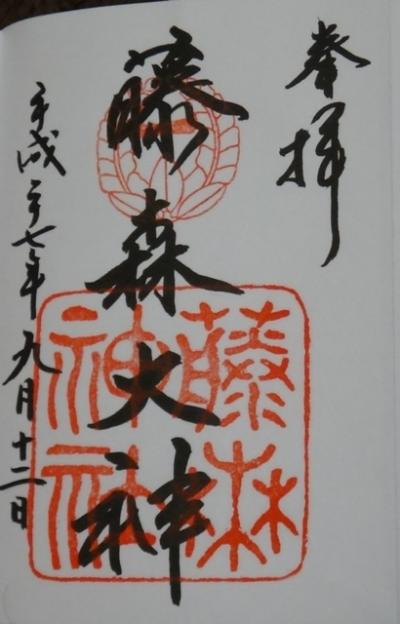 奉拝
藤森大神
藤森神社
平成二七年九月十二日